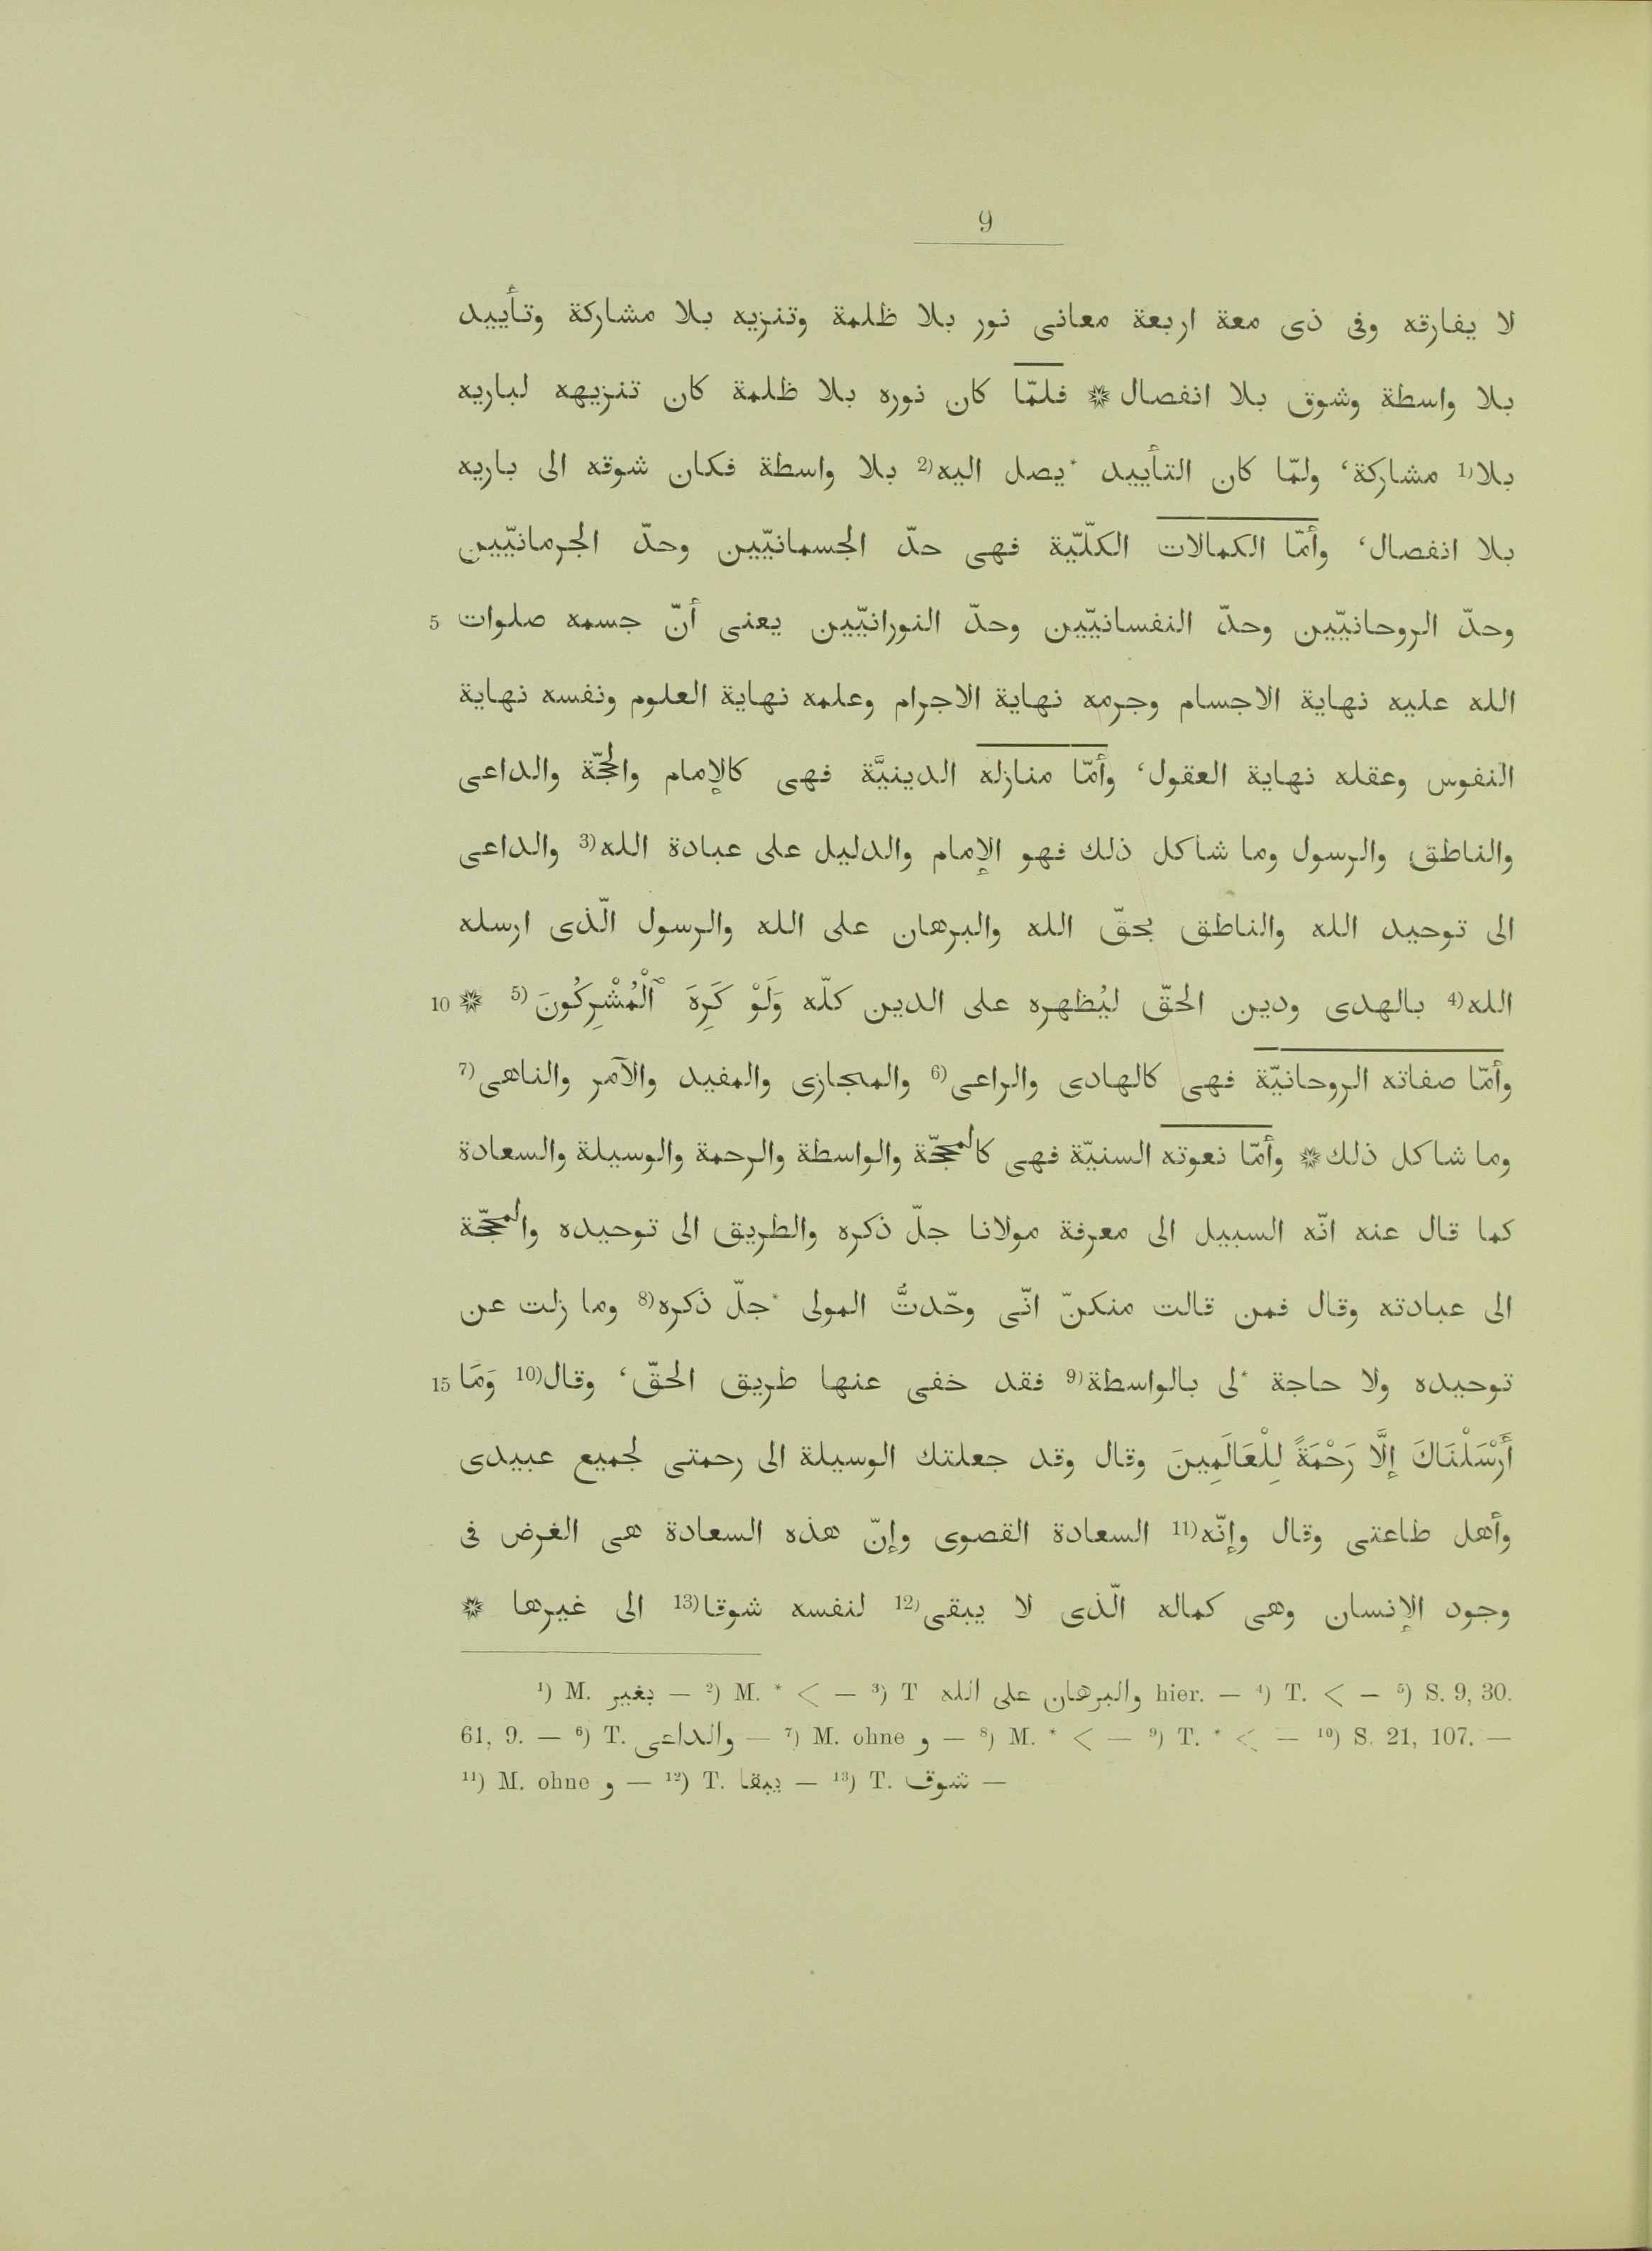 ٩
لا يفارقه وفى ذى معة اربعة معانى نور بلا ظلمة وتنزيه بلا مشاركة وتأييد
بلا واسطة وشوق بلا انفصال * فلمّا كان نوره بلا ظلمة كان تنزيهه لباريه
بلا(1 مشاركة، ولمّا كان التأييد *يصل اليه(2 بلا واسطة فكان شوقه الى باريه
بلا انفصال، وأمّا الكمالات الكلّيّة فهى حدّ الجسمانيّين وحدّ الجرمانيّين
وحدّ الروحانيّين وحدّ النفسانيّين وحدّ النورانيّين يعنى أنّ جسمه صلوات 5
الله عليه نهاية الاجسام وجرمه نهاية الاجرام وعلمه نهاية العلوم ونفسه نهاية
النفوس وعقله نهاية العقول، وأمّا منازله الدينيَّة فهى كالإمام والحجّة والداعى
والناطق والرسول وما شاكل ذلك فهو الإمام والدليل على عبادة الله(3 والداعى
الى توحيد الله والناطق بحقّ الله والبرهان على الله والرسول الّذى ارسله
الله(4 بالهدى ودين الحقّ ليُظهره على الدين كلّه وَلَوْ كَرِهَ ٱلْمُشْرِكُونَ(5 * 10
وأمّا صفاته الروحانيّة فهى كالهادى والراعى(6 والمجازى والمفيد والآمر والناهى(7
وما شاكل ذلك * وأمّا نعوته السنيّة فهى كالمحجّة والواسطة والرحمة والوسيلة والسعادة
كما قال عنه انّه السبيل الى معرفة مولانا جلّ ذكره والطريق الى توحيده والمحجّة
الى عبادته وقال فمن قالت منكنّ انّى وحّدتُّ المولى *جلّ ذكره(8 وما زلت عن
توحيده ولا حاجة *لى بالواسطة(9 فقد خفى عنها طريق الحقّ، وقال(10 وَمَا 15
أَرْسَلْنَاكَ إلَّا رَحْمَةً لِلْعَالَمِينَ وقال وقد جعلتك الوسيلة الى رحمتى لجميع عبيدى
وأهل طاعتى وقال وإنّه(11 السعادة القصوى وإنّ هذه السعادة هى الغرض فى
وجود الإنسان وهى كماله الّذى لا يبقى(12 لنفسه شوقا(13 الى غيرها *
¹) M. بغير — ²) M. * < — ³) T والبرهان على الله hier. — ⁴) T. < — ⁵) S. 9, 30.
61, 9. — ⁶) T. والداعى — ⁷) M. ohne و — ⁸) M. * < — ⁹) T. * < — ¹⁰) S. 21, 107. —
¹¹) M. ohne و — ¹²) T. يبقا — ¹³) T. شوق —